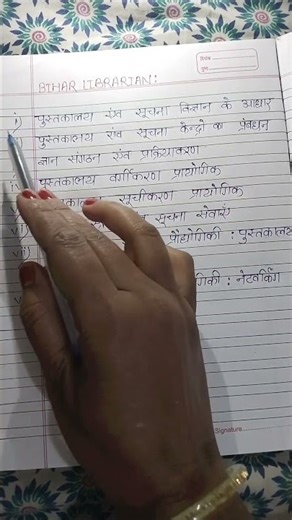 BIHAR LIBRARIAN:
i) पुस्तकालय एंव सूचना विज्ञान के आधार
पुस्तकालय एंव सूचना केन्द्रो का प्रबंधन
ज्ञान संगठन एंव प्रक्रियाकरण
पुस्तकालय वर्गीकरण प्रायोगिक
सूचीकरण प्रायोगिक
सूचना सेवाएं
प्रौद्योगिकी : पुस्तकालय
: नेटवर्किंग
Signature